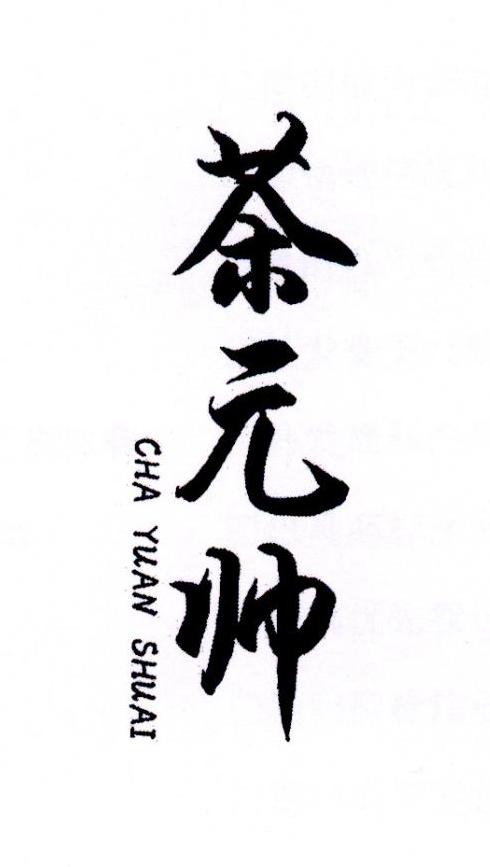 茶元帅
CHA YUAN SHUAI